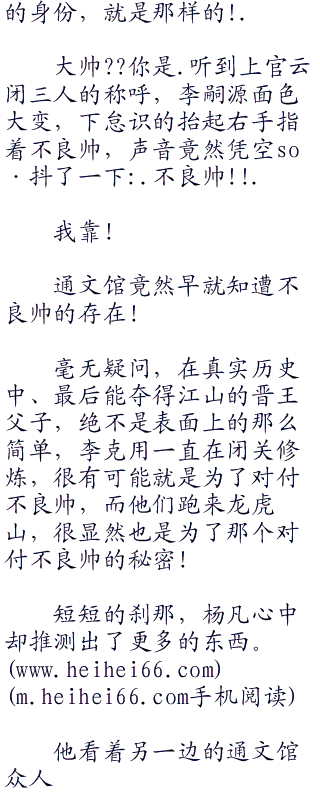 的身份，就是那样的!.
大帅??你是.听到上官云
闭三人的称呼，李嗣源面色
大变，下怠识的抬起右手指
着不良帅，声音竟然凭空so
·抖了一下:.不良帅!!.
我靠！
通文馆竟然早就知遭不
良帅的存在！
毫无疑问，在真实历史
中、最后能夺得江山的晋王
父子，绝不是表面上的那么
简单，李克用一直在闭关修
炼，很有可能就是为了对付
不良帅，而他们跑来龙虎
山，很显然也是为了那个对
付不良帅的秘密！
短短的刹那，杨凡心中
却推测出了更多的东西。
(www.heihei66.com)
(m.heihei66.com手机阅读)
他看着另一边的通文馆
众人